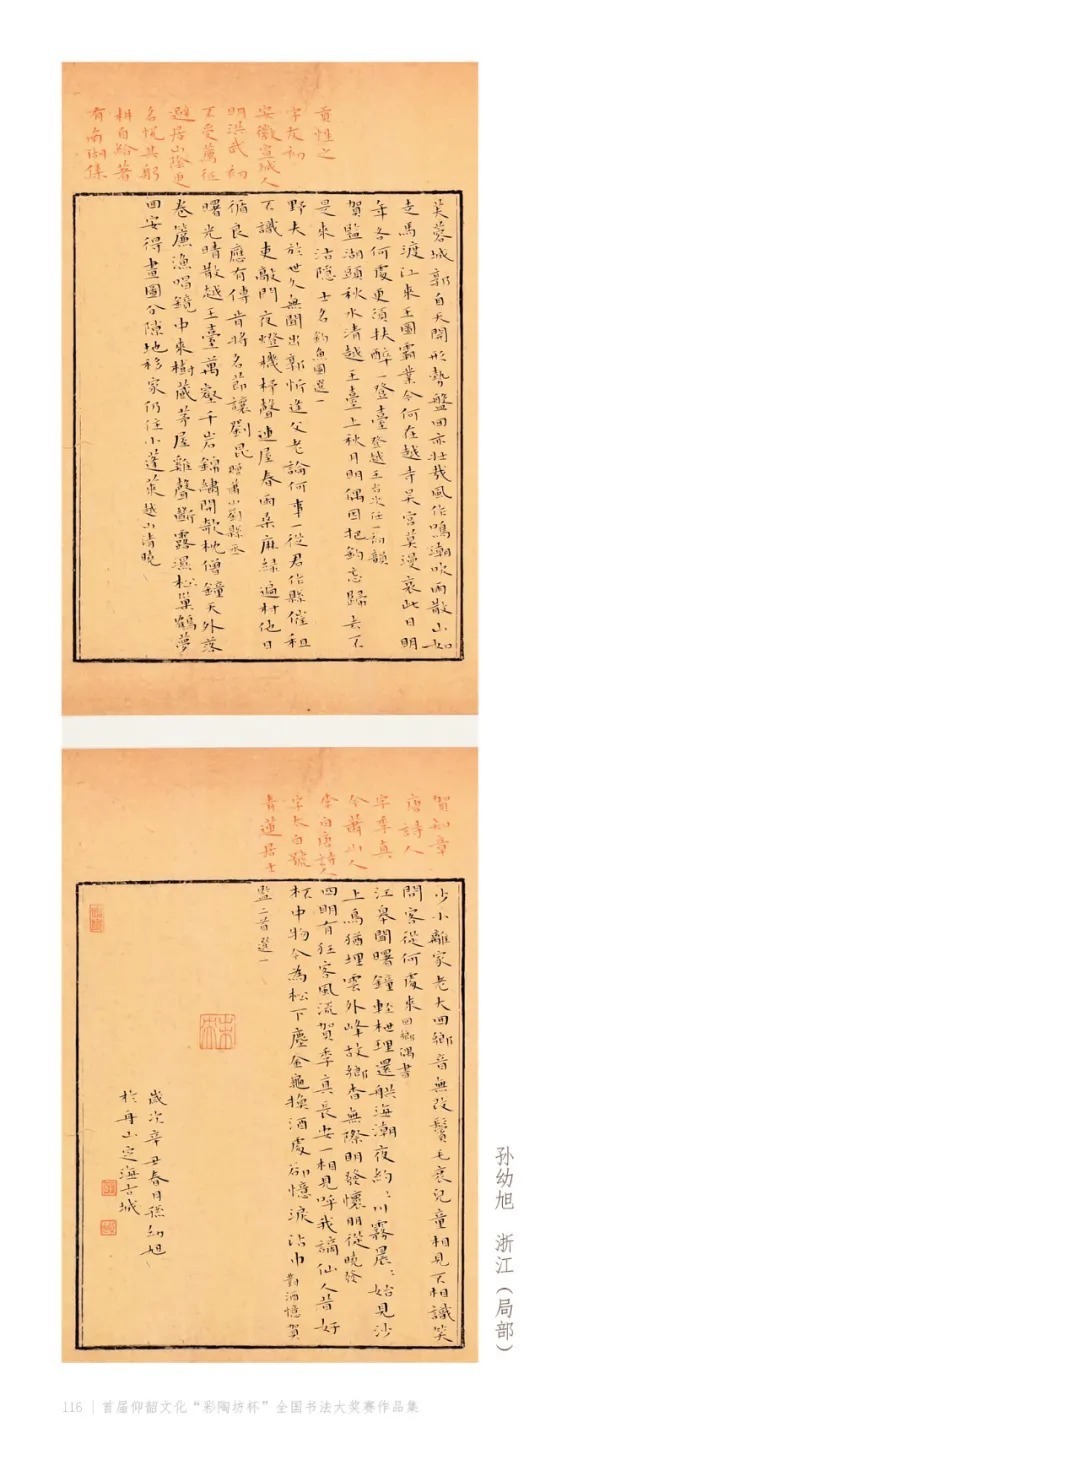 貢性之
字友初
安徽宣城人
明洪武初
不受薦征
避居山陰更
名悅其躬
耕自給著
有南湖集
芙蓉城郭自天開形勢盤回亦壯哉風作鳴潮吹雨散山如
走馬渡江來王圖霸業今何在越寺吴宫莫漫哀此日明
年各何處更須扶醉一登臺登越王台次任一初韻
賀監湖頭秋水清越王臺上秋月明偶因把釣忘歸去不
是來沽隱士名釣魚圖選一
野夫於世久無聞出郭忻逢父老論何事一從君作縣催租
不識吏敲門夜燈機杼聲連屋春雨桑麻緑遍村他日
循良應有傳肯將名節讓劉昆贈蕭山劉縣丞
曙光晴散越王臺萬壑千岩錦繡開欹枕僧鐘天外落
卷簾漁唱鏡中來樹藏茅屋雞聲斷露濕松巢鶴夢
回安得畫圖分隙地移家仍住小蓬萊越山清曉
賀知章
唐詩人
字季真
今蕭山人
李白唐詩人
字太白號
青蓮居士
少小離家老大回鄉音無改鬢毛衰兒童相見不相識笑
問客從何處來回鄉偶書
江皋聞曙鐘輕枻理還舼海潮夜約:川霧晨:始見沙
上鳥猶埋雲外峰故鄉杳無際明發懷朋從曉發
四明有狂客風流賀季真長安一相見呼我謫仙人昔好
杯中物今為松下塵金龜換酒處卻憶淚沾巾對酒憶賀
監二首選一
歲次辛丑春月孫幼旭
於舟山定海古城
孙幼旭 浙江（局部）
116 | 首届仰韶文化“彩陶坊杯”全国书法大奖赛作品集